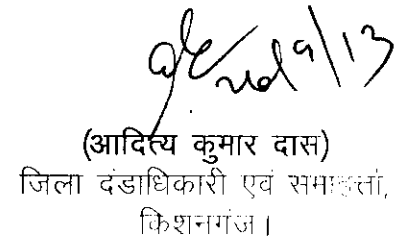 (आदित्य कुमार दास)
जिला दंडाधिकारी एवं समाहर्त्ता,
किशनगंज।